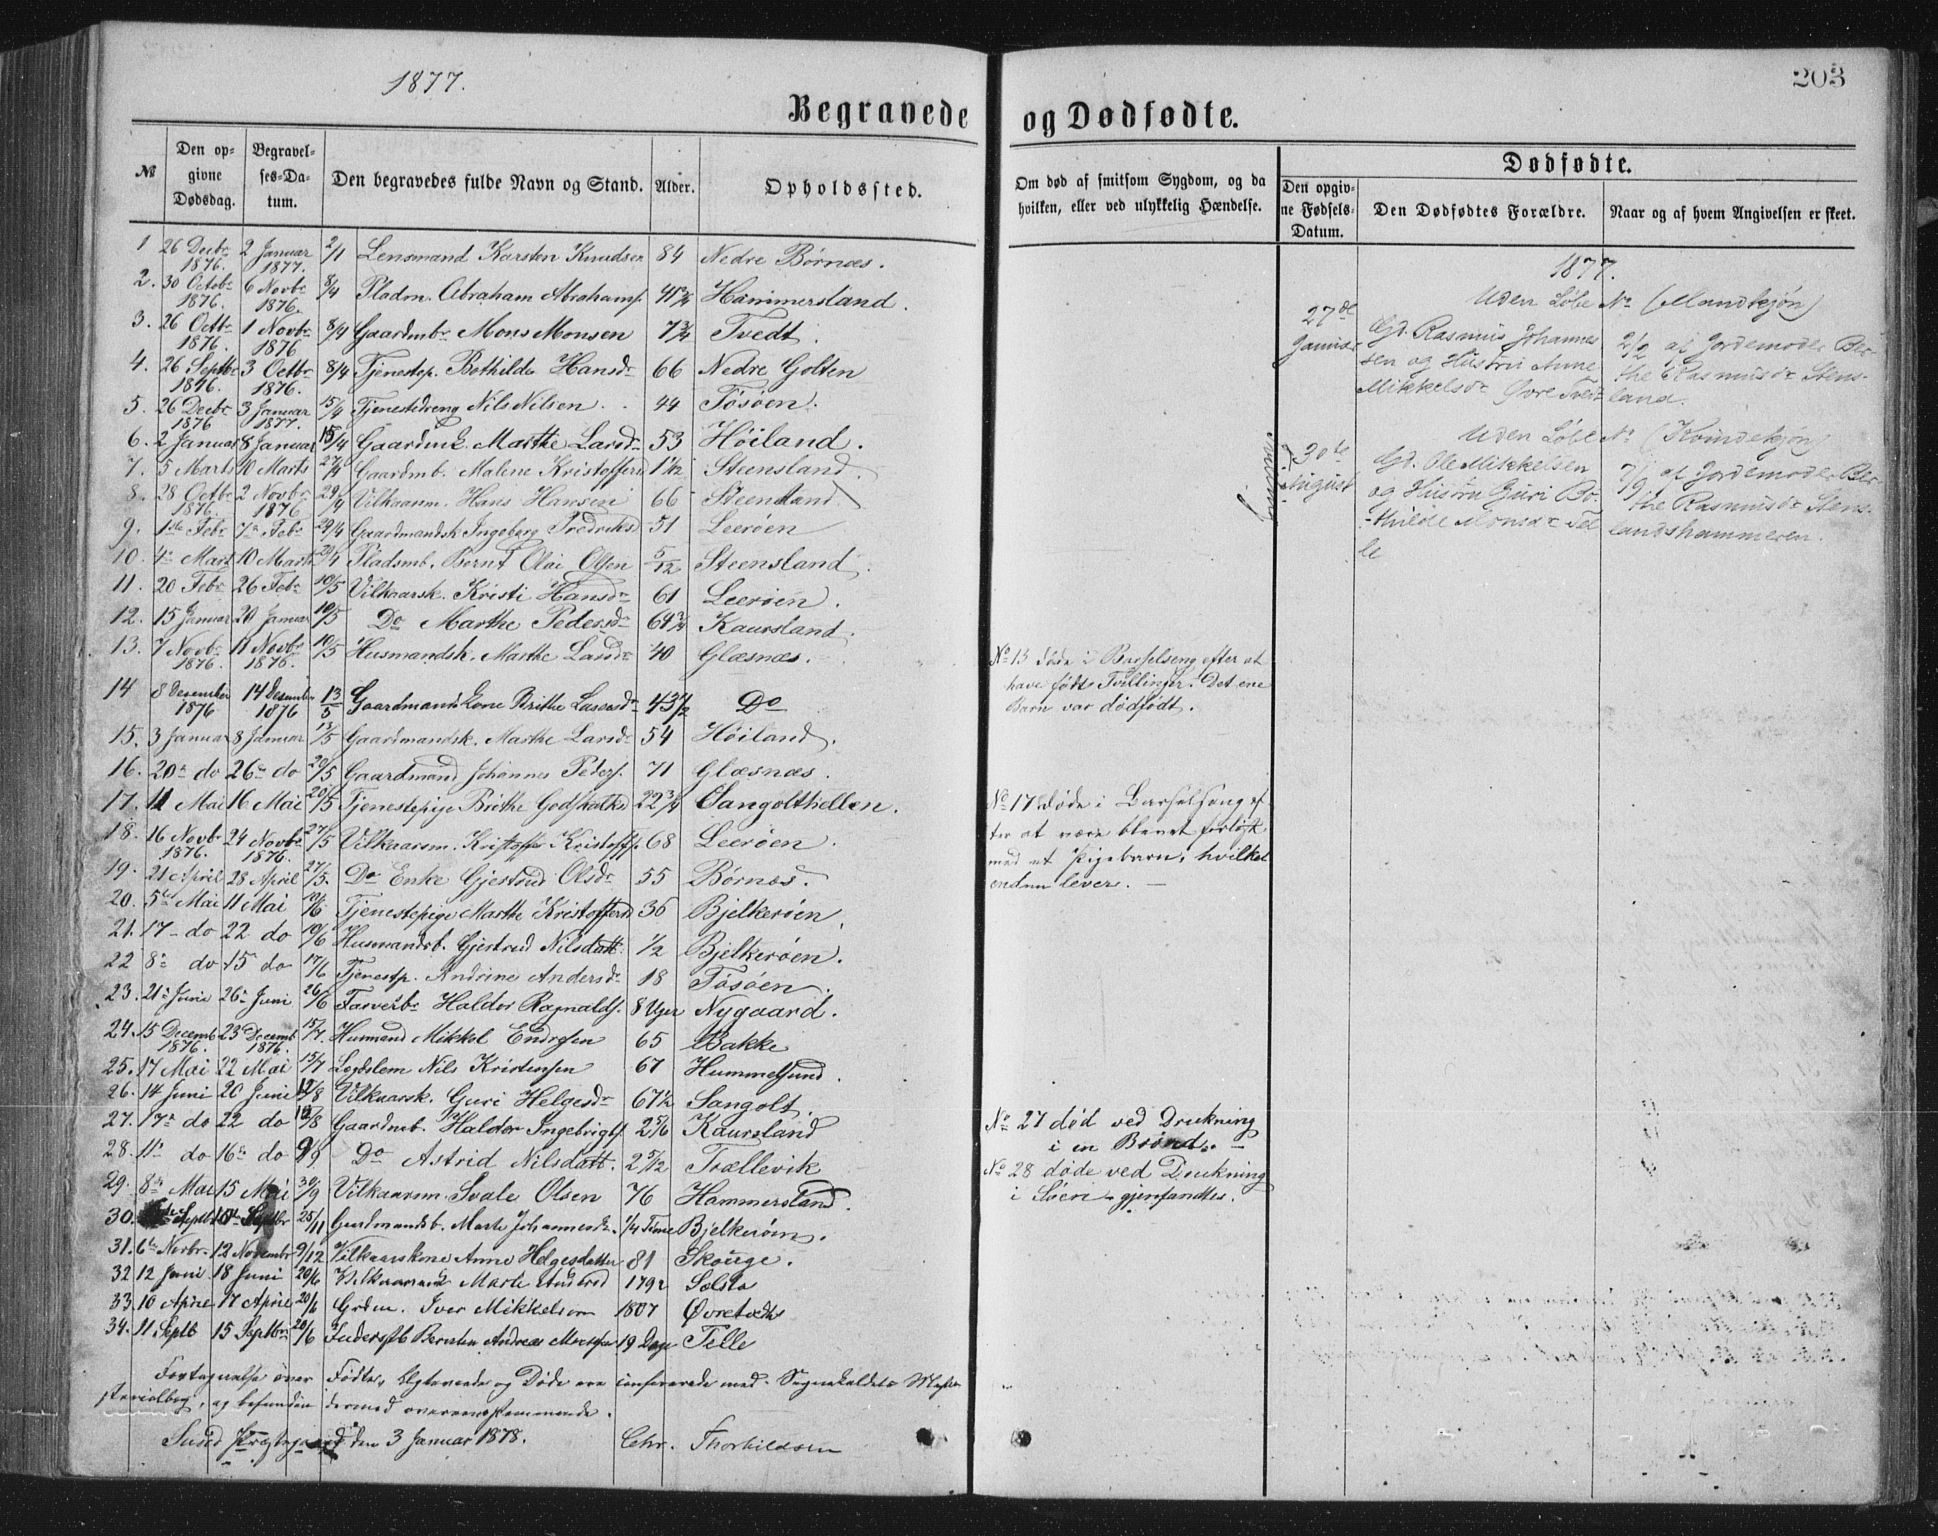 1877.
203
Begravede og Dødfødte.
№ Den opgivne Dødsdag. Begravelses-Datum. Den begravedes fulde Navn og Stand. Alder. Opholdssted.
Om død af smitsom Sygdom, og da hvilken, eller ved ulykkelig Hændelse.
Dødfødte.
Den opgivne Fødsels-Datum. Den Dødfødtes Forældre. Naar og af hvem Angivelsen er skeet.
1 26 Decbr 1876. 2 Januar 1877. 2/1 Lensmand Karsten Knudsen 84 Nedre Børnæs.
2. 30 Octobr 1876. 6 Novbr 1876. 8/4 Pladm. Abraham Abrahams. Hammersland.
3. 26 Octbr 1876. 1 Novbr 1876 8/4 Gaardmbr Mons Monsen 7 3/4 Tvedt.
4. 26 Septbr 1876. 3 Octbr 1876. 8/4 Tjenestep. Bothilde Hansdr 66 Nedre Golten
5. 26 Decbr 1876 3 Januar 1877. 15/4 Tjenestedreng Nils Nilsen. 44 Tøsøen.
6. 2 Januar 8 Januar 15/4 Gaardmk. Marthe Larsdr 53 Høiland.
7. 5 Marts 10 Marts 27/4 Gaardmb. Malene Kristoffersd 1 1/2 Steensland.
8. 28 Octbr 1876. 2 Novbr 1876 29/4 Vilkaarm. Hans Hansen 66 Steensland
9. 1ste Febr 7de Febr 29/4 Gaardmandsk Ingeborg Fredriksd 51 Leerøen
10. 4de Mart 10 Marts 29/4 Pladsmb. Bernt Olai Olsen 5/12 Steensland.
11. 20 Febr 26 Febr 10/5 Vilkaarsk. Kristi Hansdr 61 Leerøen.
12. 15 Januar 20 Januar 10/5 Do Marthe Pedersdr 64 3/4 Kaursland.
13. 7 Novbr 1876. 11 Novbr 1876. 10/5 Husmandsk. Marthe Larsdr 40 Glæsnæs.
14 8 Desember 1876 14 Desember 1876 13/5 Gaardmandskone Brithe Larsdr 43 1/2 Do
15. 3 Januar 8 Januar 13/5 Gaardmandsk. Marthe Larsdr 54 Høiland.
16. 20de do 26de do 20/5 Gaardmand Johannes Peders. 71 Glæsnæs.
17. 11 Mai 16 Mai 20/5 Tjenestepige Brithe Godskalksd 22 3/4 Sangolthellen.
18. 16 Novbr 1876. 24 Novbr 1876. 27/5 Vilkaarsm. Kristoffer Kristoffs. 68 Leerøen.
19. 21 April 28 April 27/5. Do Enke Gjertrud Olsdr 55 Børnæs.
20. 5te Mai 11 Mai 10/6 Tjenestepige Marthe Kristoffersd 36 Bjelkerøen.
21. 17- do 22 do 10/6 Husmandsb. Gjertrud Nilsdatt. 1/2 Bjelkerøen.
22 8de do 15 do 17/6 Tjenestp. Andrine Andersdr 18 Tøsøen.
23. 21de Juni 26de Juni 26/6 Farverbr Haldor Ragnalds. 8 Uger Nygaard.
24. 15 Decemb 1876. 23 Decemb 1876. 15/7. Husmand Mikkel Endresen 65 Bakke
25. 17 Mai 22 Mai 15/7 Logdslem Nils Kristensen 67 Hummelsund.
26. 14 Juni 20 Juni 12/8 Vilkaarsk. Guri Helgesdr 67 1/2 Sangolt.
27. 17de do 22 do 12/8 Gaardmb. Haldor Ingebrigts 2 5/6 Kaursland
28. 11te do 16de do 9/9 Do Astrid Nilsdatt. 2 5/12 Trællevik
29. 8de Mai 15 Mai 30/9 Vilkaarsm. Svale Olsen 76 Hammersland.
30. Septbr Septbr 25/11 Gardmandsb. Marte Johannesdr. 1/4 Time Bjelkerøen.
31. 6te Novbr. 12 Novembr 9/12 Vilkaarskone Anne Helgesdatter 81 Skouge.
32 12 Juni 18 Juni 20/6 Marte 1792 Solsta
33. 10 April 17 April 20/6 Grdm. Iver Mikkelson 1807 Øvretvedt
34. 11 Septb 15 Septbr 20/6 Bernten Andreas 19 Dage Telle
Fortegnelse over Fødte, Egteviede og Døde ere confererede med Sognekaldets Mini-
sterialbog, og befunden dermed overensstemmende.
Sund Præstegaard den 3 Januar 1878. Chr. Thorkildsen
No 13 døde i Barselseng efter at
have født Tvillinger. Det ene
Barn var dødfødt.
No 17 døde i Barselseng ef-
ter at være blevet forløst
med et Pigebarn, hvilket
endnu lever. —
No 27 død ved Drukning
i en Brønd. —
No 28 døde ved Drukning
i Søen - gjenfandtes.
1877.
Uden Løbe No (Mandkjøn)
27de Januar
Gd. Rasmus Johannes
sen og Hustru Anne
Mikkelsdr Øvre Tvedt
2/2 af Jordemoder Ber-
the Rasmusdr Stens-
land.
Uden Løbe No (Kvindekjøn)
30te August
Gd. Ole Mikkelsen
og Hustru Guri Bo-
thilde Monsdr Tel
le
7/9 af Jordemoder Ber-
the Rasmusdr Stens-
landshammeren.